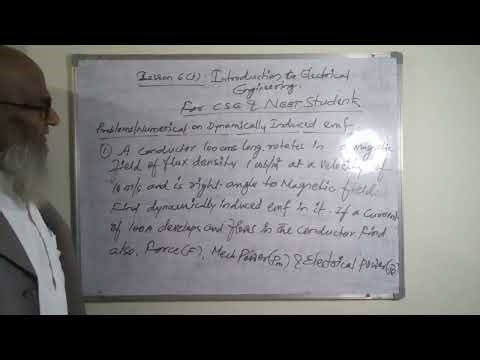 Lesson 6(1): Introduction to Electrical
Engineering.
For CSE & NEET Student
Problems/Numerical on Dynamically Induced emf
① A conductor 100cms long rotates in a magnetic
field of flux density 1 wb/m² at a velocity of
10 m/s and is right angle to Magnetic field.
Find dynamically induced emf in it. If a Current
of 100A develops and flows in the conductor find
also, Force(F), Mech Power(Pm) & Electrical power